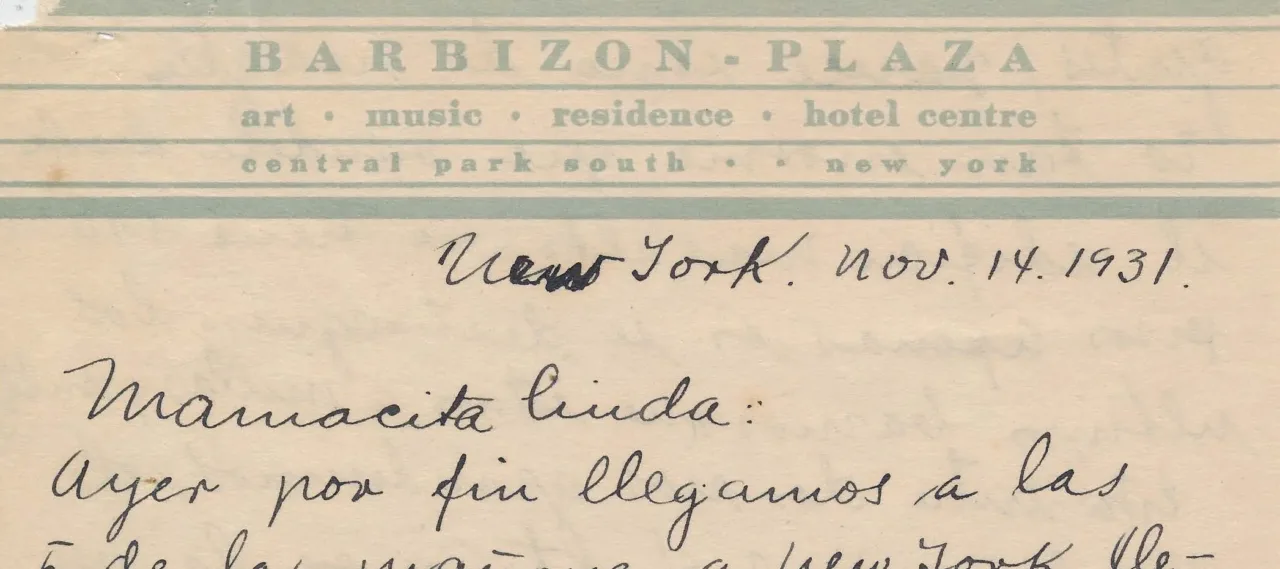 BARBIZON-PLAZA
art • music • residence • hotel centre
central park south • • new york
New York. Nov. 14. 1931.
Mamacita linda:
Ayer por fin llegamos a las
5 de la mañana a New York lle-